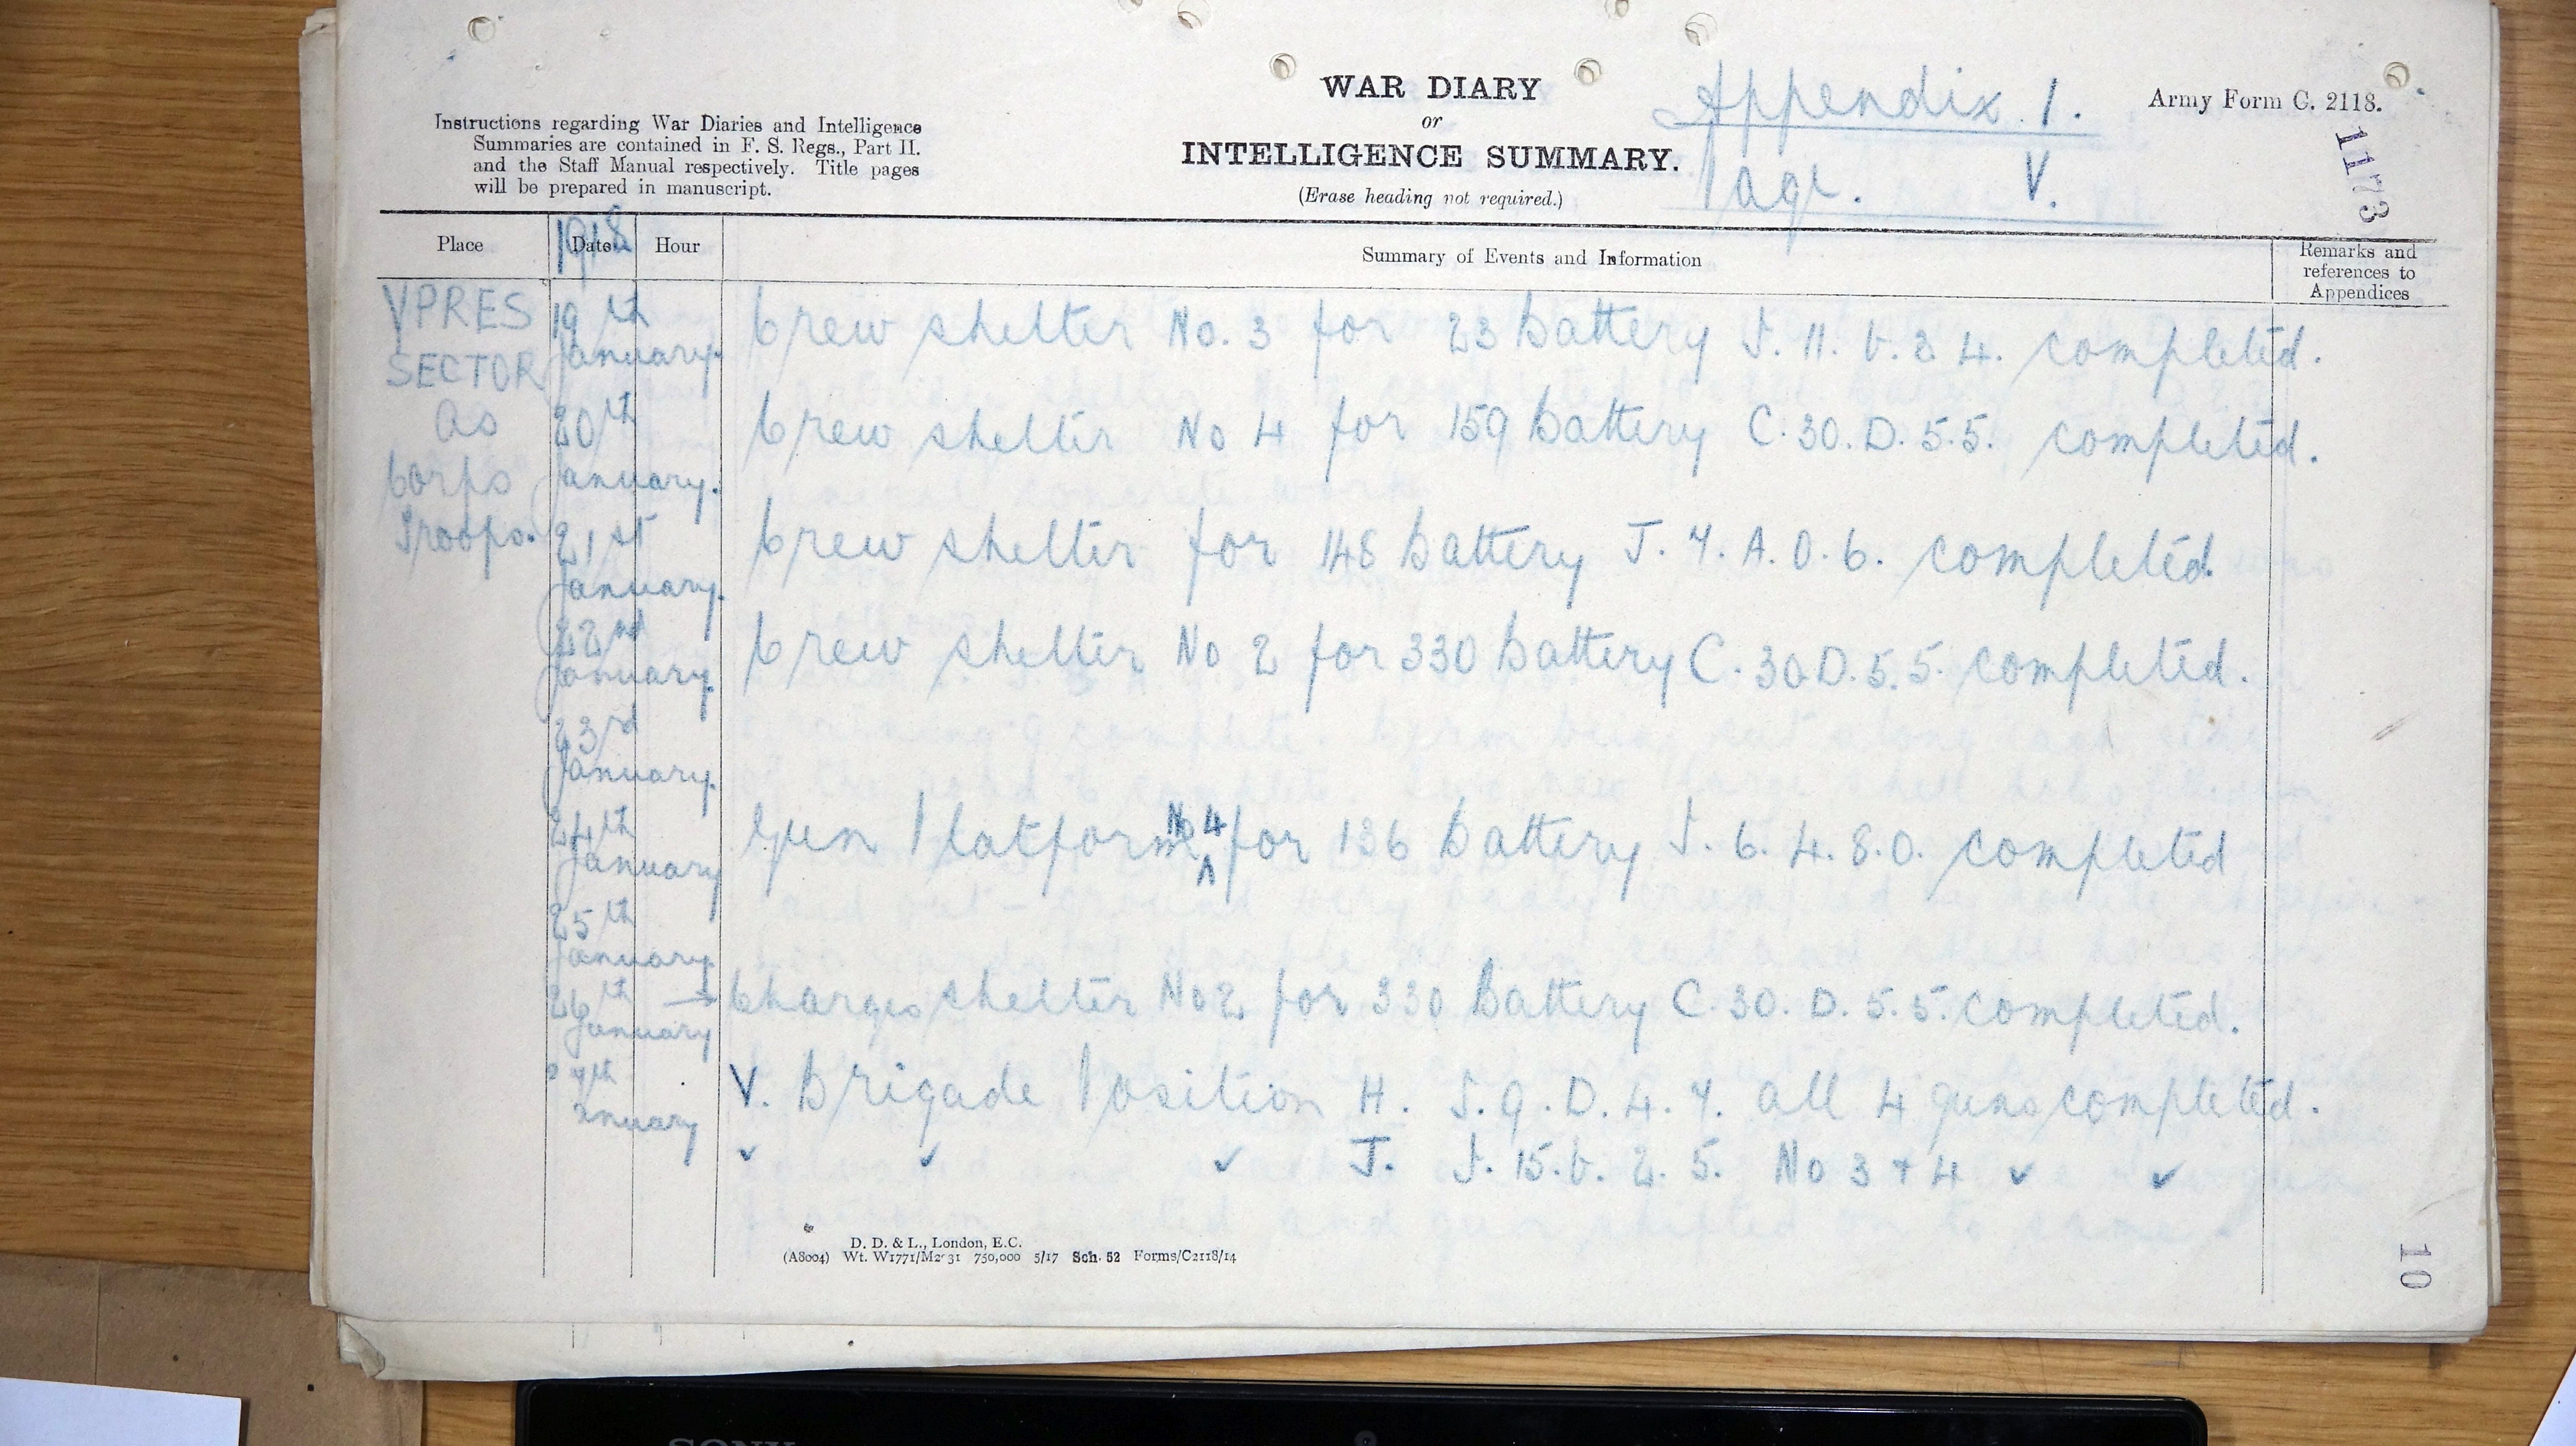 WAR DIARY
or
INTELLIGENCE SUMMARY.
(Erase heading not required.)
Instructions regarding War Diaries and Intelligence
Summaries are contained in F. S. Regs., Part II.
and the Staff Manual respectively. Title pages
will be prepared in manuscript.
Appendix 1.
Page. V.
Army Form C. 2118.
1173
Place 1918 Date Hour Summary of Events and Information
Remarks and
references to
Appendices
YPRES
SECTOR
as
Corps
Troops.
19th January. Crew shelter No. 3 for 23 Battery J. 11. b. 2. 4. completed.
20th January. Crew shelter No 4 for 159 Battery C. 30. D. 5.5. completed.
21st January. Crew shelter for 148 Battery J. 7. A. 0. 6. completed.
22nd January. Crew shelter No 2 for 330 Battery C. 30 D. 5.5. completed.
23rd January.
24th January Gun Platform No 4 for 136 Battery J. 6. 4. 8. 0. completed
25th January
26th January → Charges shelter No 2 for 330 Battery C. 30. D. 5.5. completed.
27th January V. Brigade Position H. J. 9. D. 4. 7. all 4 guns completed.
✓ ✓ ✓ J. J. 15. b. 2. 5. No 3 + 4 ✓ ✓
D. D. & L., London, E.C.
(A8004) Wt. W1771/M2031 750,000 5/17 Sch. 52 Forms/C2118/14
10
SONY